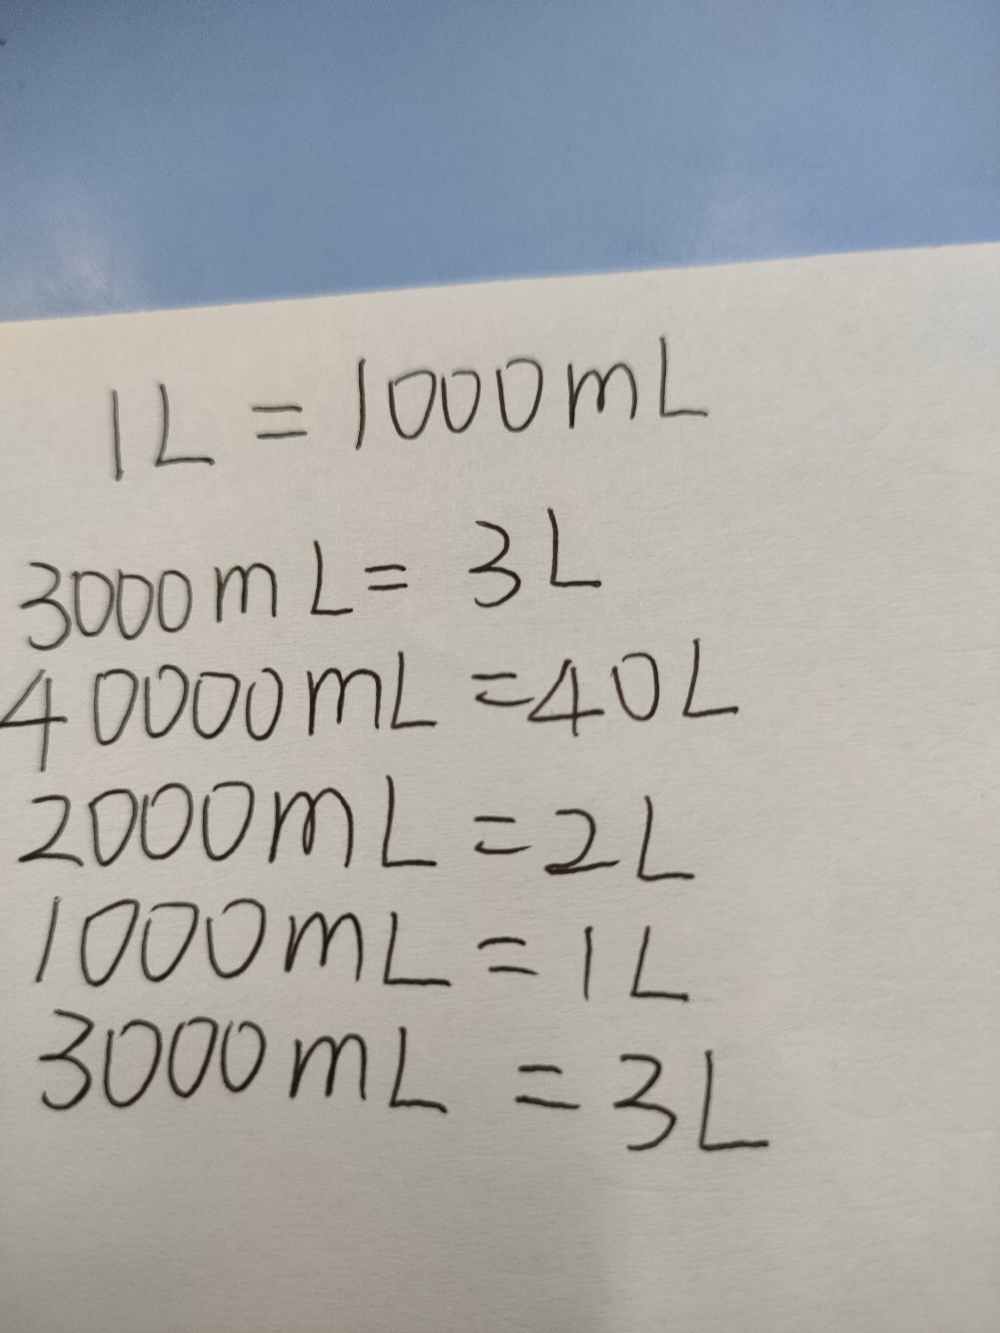 1L = 1000mL
3000mL = 3L
40000mL = 40L
2000mL = 2L
1000mL = 1L
3000mL = 3L